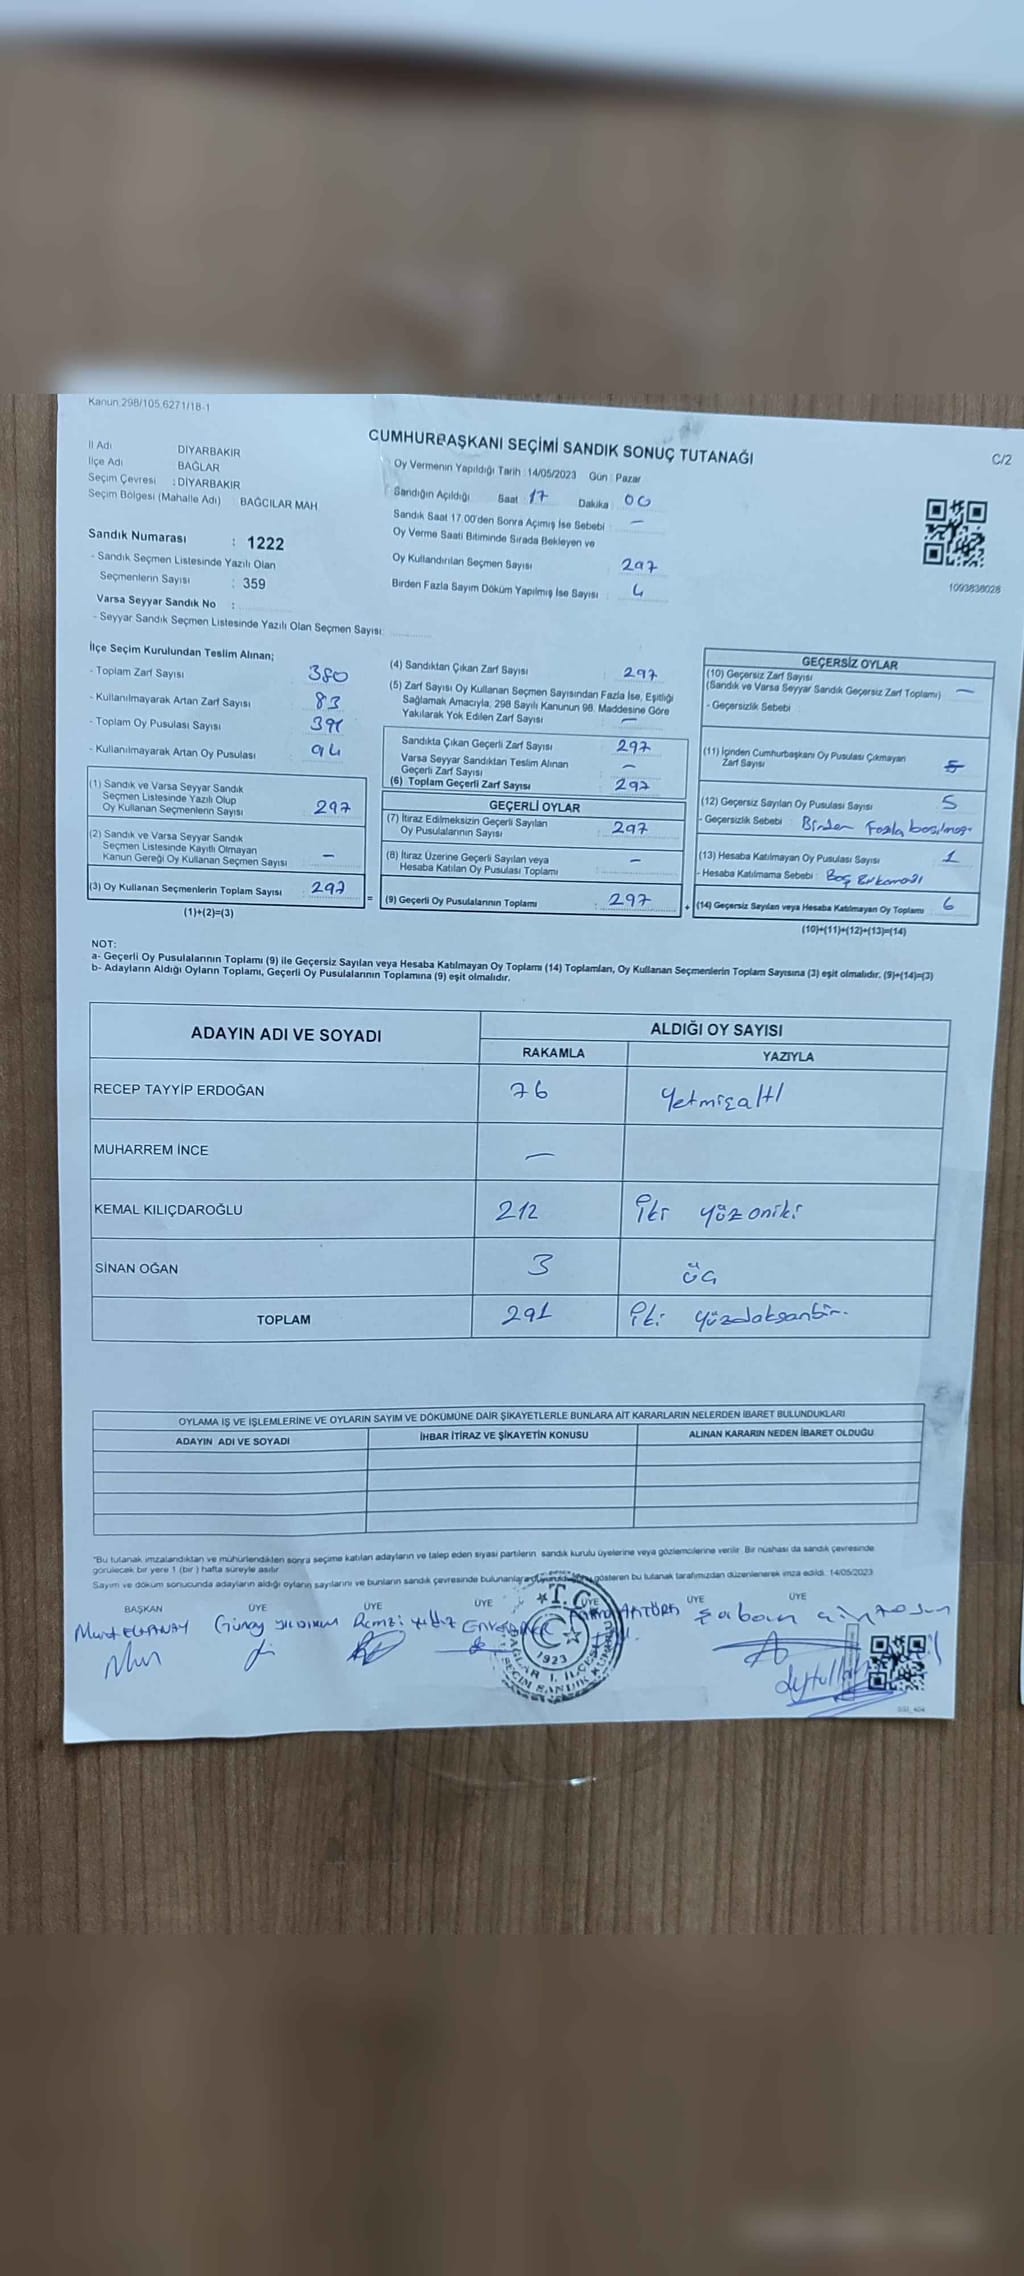 Kanun.298/105,6271/18-1
CUMHURBAŞKANI SEÇİMİ SANDIK SONUÇ TUTANAĞI
C/2
İl Adı DİYARBAKIR
İlçe Adı BAĞLAR
Seçim Çevresi : DİYARBAKIR
Seçim Bölgesi (Mahalle Adı) BAĞCILAR MAH
Sandık Numarası : 1222
- Sandık Seçmen Listesinde Yazılı Olan
Seçmenlerin Sayısı : 359
Varsa Seyyar Sandık No :
- Seyyar Sandık Seçmen Listesinde Yazılı Olan Seçmen Sayısı:
Oy Vermenin Yapıldığı Tarih : 14/05/2023 Gün : Pazar
Sandığın Açıldığı Saat 17 Dakika : 00
Sandık Saat 17.00'den Sonra Açımış İse Sebebi : —
Oy Verme Saati Bitiminde Sırada Bekleyen ve
Oy Kullandırılan Seçmen Sayısı 297
Birden Fazla Sayım Döküm Yapılmış İse Sayısı : 4
1093838028
İlçe Seçim Kurulundan Teslim Alınan;
- Toplam Zarf Sayısı 380
- Kullanılmayarak Artan Zarf Sayısı 83
- Toplam Oy Pusulası Sayısı 391
- Kullanılmayarak Artan Oy Pusulası 94
(1) Sandık ve Varsa Seyyar Sandık
Seçmen Listesinde Yazılı Olup
Oy Kullanan Seçmenlerin Sayısı 297
(2) Sandık ve Varsa Seyyar Sandık
Seçmen Listesinde Kayıtlı Olmayan
Kanun Gereği Oy Kullanan Seçmen Sayısı —
(3) Oy Kullanan Seçmenlerin Toplam Sayısı 297
(1)+(2)=(3)
(4) Sandıktan Çıkan Zarf Sayısı 297
(5) Zarf Sayısı Oy Kullanan Seçmen Sayısından Fazla İse, Eşitliği
Sağlamak Amacıyla, 298 Sayılı Kanunun 98. Maddesine Göre
Yakılarak Yok Edilen Zarf Sayısı —
Sandıkta Çıkan Geçerli Zarf Sayısı 297
Varsa Seyyar Sandıktan Teslim Alınan
Geçerli Zarf Sayısı —
(6) Toplam Geçerli Zarf Sayısı 297
GEÇERLİ OYLAR
(7) İtiraz Edilmeksizin Geçerli Sayılan
Oy Pusulalarının Sayısı 297
(8) İtiraz Üzerine Geçerli Sayılan veya
Hesaba Katılan Oy Pusulası Toplamı —
= (9) Geçerli Oy Pusulalarının Toplamı : 297
GEÇERSİZ OYLAR
(10) Geçersiz Zarf Sayısı
(Sandık ve Varsa Seyyar Sandık Geçersiz Zarf Toplamı) —
- Geçersizlik Sebebi :
(11) İçinden Cumhurbaşkanı Oy Pusulası Çıkmayan
Zarf Sayısı 5
(12) Geçersiz Sayılan Oy Pusulası Sayısı 5
- Geçersizlik Sebebi : Birden Fazla basılmış.
(13) Hesaba Katılmayan Oy Pusulası Sayısı 1
- Hesaba Katılmama Sebebi : Boş
+ (14) Geçersiz Sayılan veya Hesaba Katılmayan Oy Toplamı 6
(10)+(11)+(12)+(13)=(14)
NOT:
a- Geçerli Oy Pusulalarının Toplamı (9) ile Geçersiz Sayılan veya Hesaba Katılmayan Oy Toplamı (14) Toplamları, Oy Kullanan Seçmenlerin Toplam Sayısına (3) eşit olmalıdır. (9)+(14)=(3)
b- Adayların Aldığı Oyların Toplamı, Geçerli Oy Pusulalarının Toplamına (9) eşit olmalıdır.
ADAYIN ADI VE SOYADI ALDIĞI OY SAYISI
RAKAMLA YAZIYLA
RECEP TAYYİP ERDOĞAN 76 Yetmişaltı
MUHARREM İNCE —
KEMAL KILIÇDAROĞLU 212 İki yüzoniki
SİNAN OĞAN 3 üç
TOPLAM 291 İki yüzdoksanbir.
OYLAMA İŞ VE İŞLEMLERİNE VE OYLARIN SAYIM VE DÖKÜMÜNE DAİR ŞİKAYETLERLE BUNLARA AİT KARARLARIN NELERDEN İBARET BULUNDUKLARI
ADAYIN ADI VE SOYADI İHBAR İTİRAZ VE ŞİKAYETİN KONUSU ALINAN KARARIN NEDEN İBARET OLDUĞU
"Bu tutanak imzalandıktan ve mühürlendikten sonra seçime katılan adayların ve talep eden siyasi partilerin sandık kurulu üyelerine veya gözlemcilerine verilir. Bir nüshası da sandık çevresinde
görülecek bir yere 1 (bir) hafta süreyle asılır.
Sayım ve döküm sonucunda adayların aldığı oyların sayılarını ve bunların sandık çevresinde bulunanlara gösteren bu tutanak tarafımızdan düzenlenerek imza edildi. 14/05/2023
BAŞKAN ÜYE ÜYE ÜYE ÜYE ÜYE ÜYE
Günay YILDIRIM Remzi Yıldız Şaban
T.C.
1923
BAĞLAR 1. İLÇE
SEÇİM SANDIK